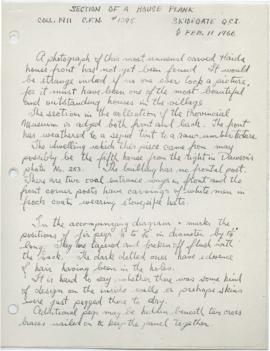 SECTION OF A HOUSE PLANK
COLL. 1911 C.F.N. # 1095 SKIDEGATE Q.C.I.
FEB. 11 1966
A photograph of this most unusual carved Haida
house front has not yet been found. It would
be strange indeed if no one ever took a picture,
for it must have been one of the most beautiful
and outstanding houses in the village.
The section in the collection of the Provincial
Museum is edged both front and back. The front
has weathered to a sepia tint to a raw-umber
The dwelling which this piece came from may
possibly be the fifth house from the right in Dawson's
photo No. 253. The building has no frontal post.
There are two oval entrance ways in front and the
front corner posts have carvings of white men in
frock coats wearing stovepipe hats.
In the accompanying diagram + marks the
positions of fir pegs in diameter by
long. They are tapered and broken off flush with
the back. The dark dotted ones have evidence
of having been in the holes.
It is hard to say whether there was some kind
of design on the inside walls or perhaps skins
were just pegged there to dry.
Additional pegs may be hidden beneath two cross
braces nailed on to keep the panel together.